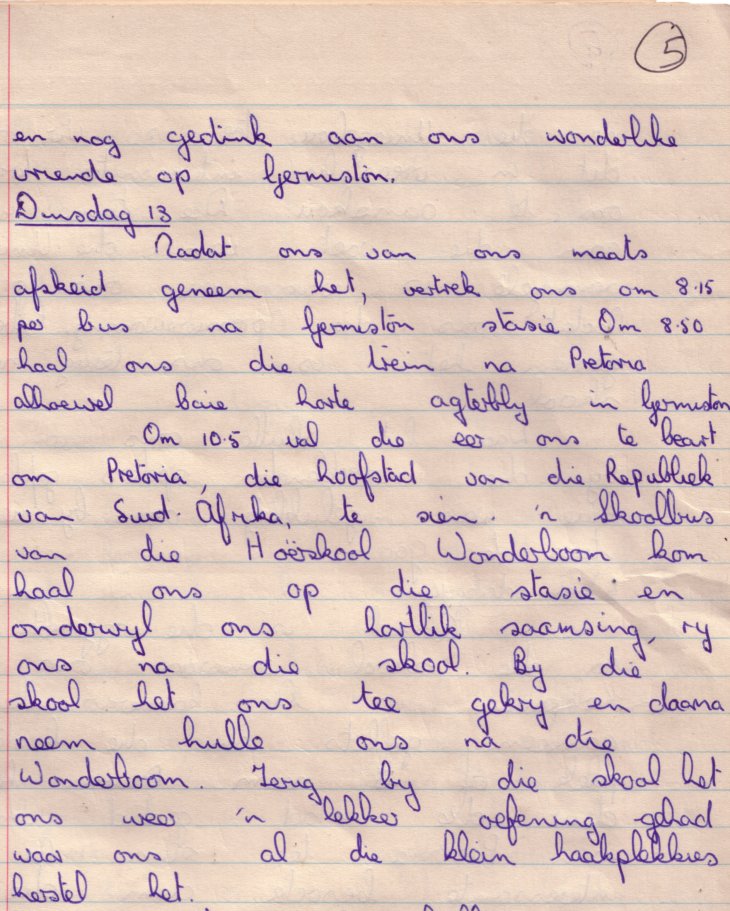 5
en nog gedink aan ons wonderlike
vriende op Germiston.
Dinsdag 13
Nadat ons van ons maats
afskeid geneem het, vertrek ons om 8.15
per bus na Germiston stasie. Om 8.50
haal ons die trein na Pretoria
alhoewel baie harte agterbly in Germiston
Om 10.5 val die eer ons te beart
om Pretoria, die hoofstad van die Republiek
van Suid-Afrika, te sien. 'n Skoolbus
van die Hoërskool Wonderboom kom
haal ons op die stasie en
onderwyl ons hartlik saamsing, ry
ons na die skool. By die
skool het ons tee gekry en daarna
neem hulle ons na die
Wonderboom. Terug by die skool het
ons weer 'n lekker oefening gehad
waar ons al die klein haakplekkies
herstel het.